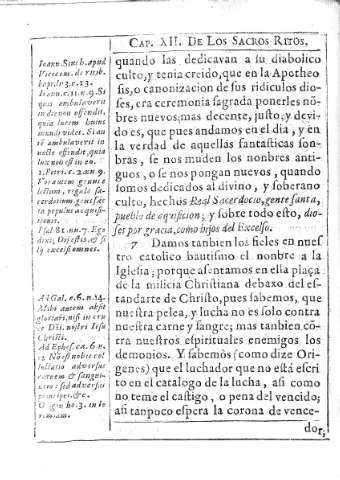 CAP. XII. DE LOS SACROS RITOS,
quando las dedicavan a su diabolico
culto, y tenia creido, que en la Apotheo
sis, o canonizacion de sus ridiculos dio-
ses, era ceremonia sagrada ponerles nõ-
bres nuevos; mas decente, justo, y devi-
do es, que pues andamos en el dia, y en
la verdad de aquellas fantasticas som-
bras, se nos muden los nonbres anti-
guos, o se nos pongan nuevos, quando
somos dedicados al divino, y soberano
culto, hechos Real Sacerdocio, gente santa,
pueblo de aquisicion; y sobre todo esto, dio-
ses por gracia, como hijos del Excelso.
7 Damos tanbien los fieles en nues
tro catolico bautismo el nonbre a la
Iglesia; porque asentamos en ella plaça
de la milicia Christiana debaxo del es-
tandarte de Christo, pues sabemos, que
nuestra pelea, y lucha no es solo contra
nuestra carne y sangre; mas tanbien cõ-
tra nuestros espirituales enemigos los
demonios. Y sabemos (como dize Ori-
genes) que el luchador que no está escri
to en el catalogo de la lucha, asi como
no teme el castigo, o pena del vencido;
asi tanpuco espera la corona de vence-
dor;
Ioann. c. 11. n. 9. Si
quis ambulaverit
in die non offendit,
quia lucem huius
mundi videt. Si au
tẽ ambulaverit in
nocte offendit, quia
lux non est in eo.
1. Petri. c. 2. n. 9.
Vos autem genus e
lectum, regale sa-
cerdotium gens sãc
ta populus acquisi-
tionis.
Psal. 81. nu. 7. Ego
dixi; Dij estis, & fi
lij excelsi omnes.
Al Gal. c. 6. n. 14.
Mihi autem absit
gloriari, nisi in cru
ce Dñi. nostri Iesu
Christi.
Ad Ephes. ca. 6. n.
12. Nõ est nobis col
luctatio adversus
carnem & sangui-
nem: sed adversus
principes, &c.